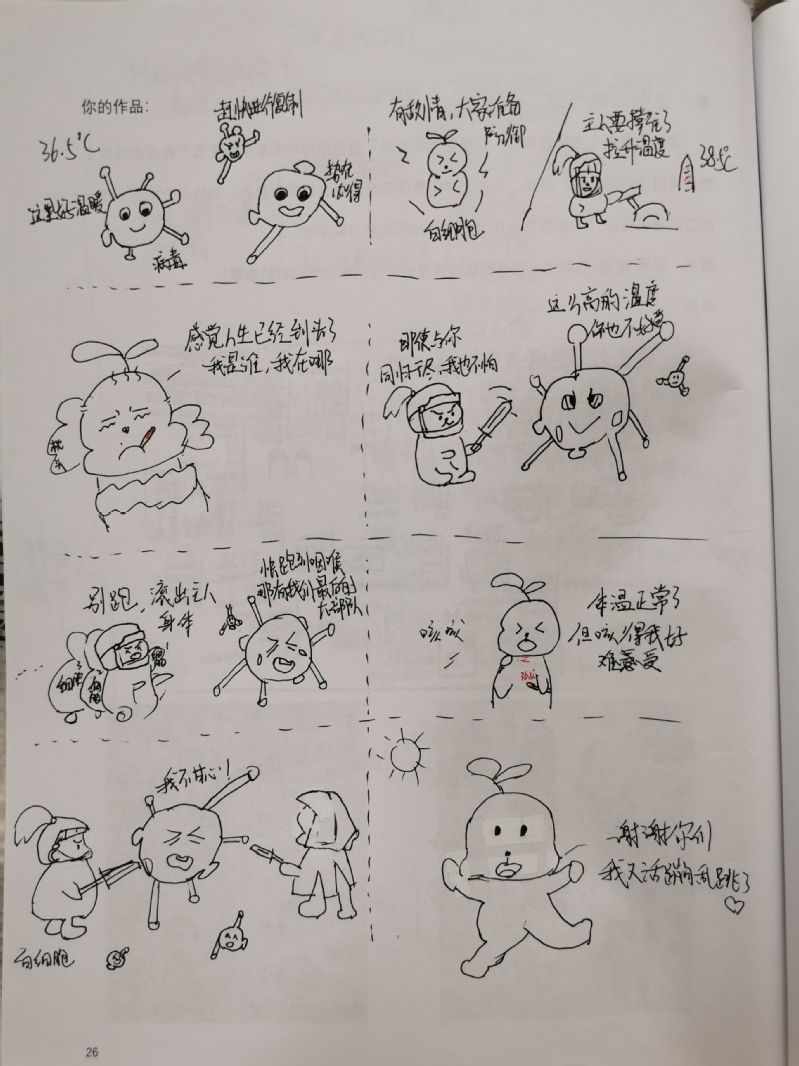 你的作品:
赶快进行复制
36.5℃
这里好温暖
病毒
势在
必得
有敌情,大家准备
防御
白细胞
主人要撑住了
拉升温度
38.5℃
感觉人生已经到头了
我是谁,我在哪
枕头
即使与你
同归于尽,我也不怕
这么高的温度
你也不好受
别跑,滚出主人
身体
白细胞
快跑到咽喉
那有我们最后的
大部队
咳咳
体温正常了
但咳得我好
难受
我不甘心!
白细胞
谢谢你们
我又活蹦乱跳了
26